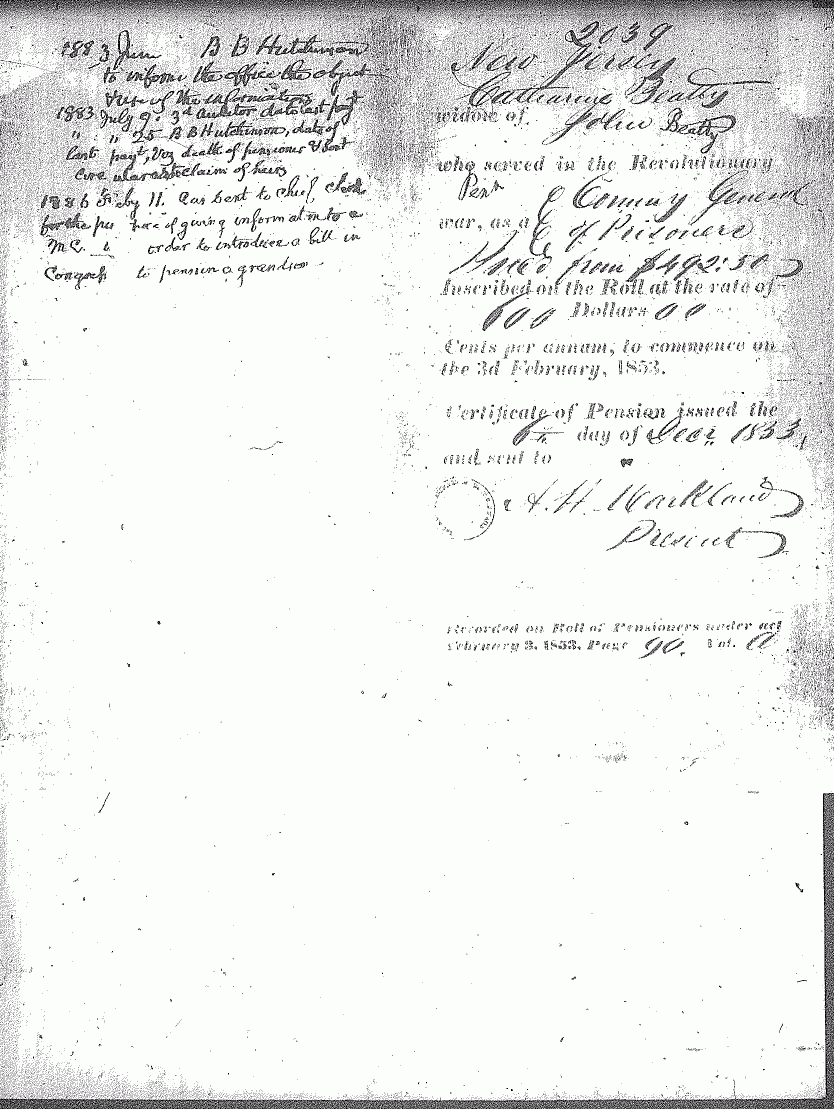 1883 June B B Hutchinson
to inform the office the object
& use of the information
1883 July 9: 3d Auditor date last payt
" " 25 B B Hutchinson, date of
last payt, & death of pensioner & sent
circular as to claim of heirs
1886 Feby 11. Cas sent to chief clerk
for the pur pose of giving information to a
M.C. in order to introduce a bill in
Congress to pension a grandson
2039
New Jersey
Catharine Beatty
widow of John Beatty
who served in the Revolutionary
Penn Comisy General
war, as a of Prisoners
Incsd from $492.50
Inscribed on the Roll at the rate of
600 Dollars 00
Cents per annum, to commence on
the 3d February, 1853.
Certificate of Pension issued the
6th day of Decr 1853,
and sent to
A. H. Markland
Present
Recorded on Roll of Pensioners under act
February 3, 1853, Page 90. Vol. A